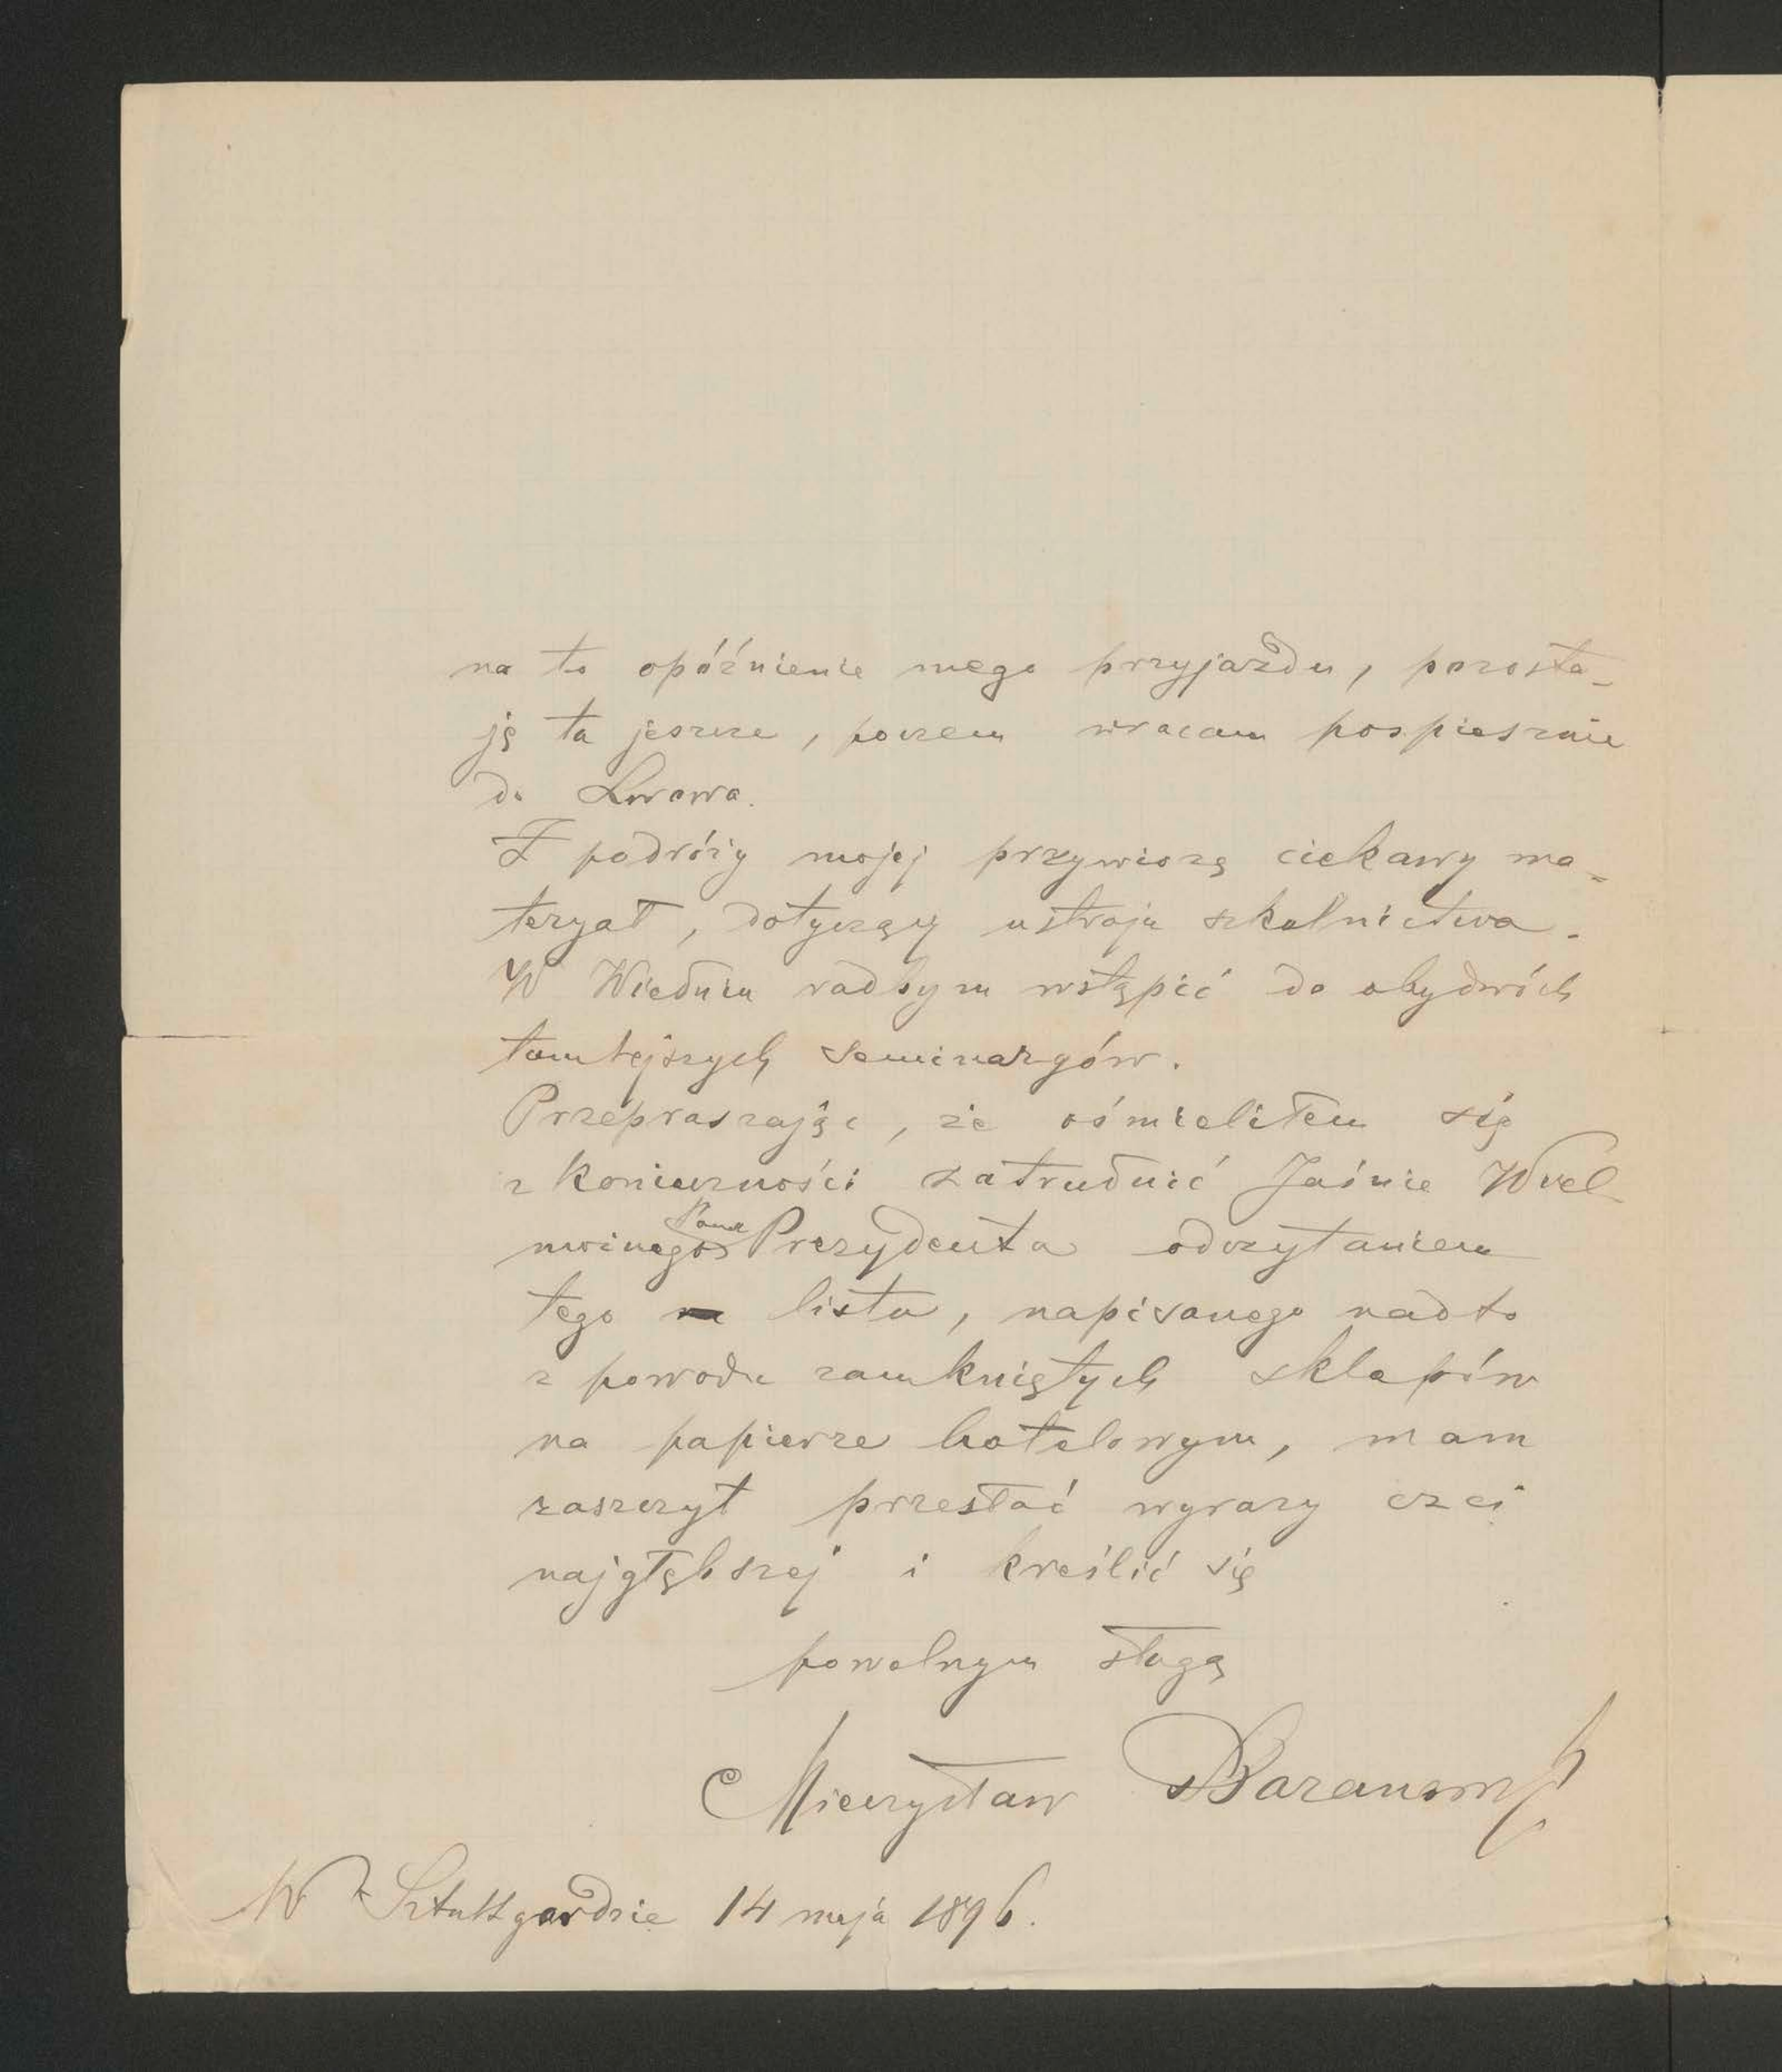 na to opóźnienie mego przyjazdu, pozosta-
ję tu jeszcze, poczem wracam pospiesznie
do Lwowa.
Z podróży mojej przywiozę ciekawy ma-
teryał, dotyczący ustroju szkolnictwa.
W Wiedniu radbym wstąpić do obydwóch
tamtejszych seminaryów.
Przepraszając, że ośmieliłem się
z konieczności zatrudnić Jaśnie Wiel
możnego Pana Prezydenta odczytaniem
tego listu, napisanego nadto
z powodu zamkniętych sklepów
na papierze hotelowym, mam
zaszczyt przesłać wyrazy czci
najgłębszej i kreślić się
powolnym sługą
Mieczysław Baranowski
W Sztuttgardzie 14 maja 1896.